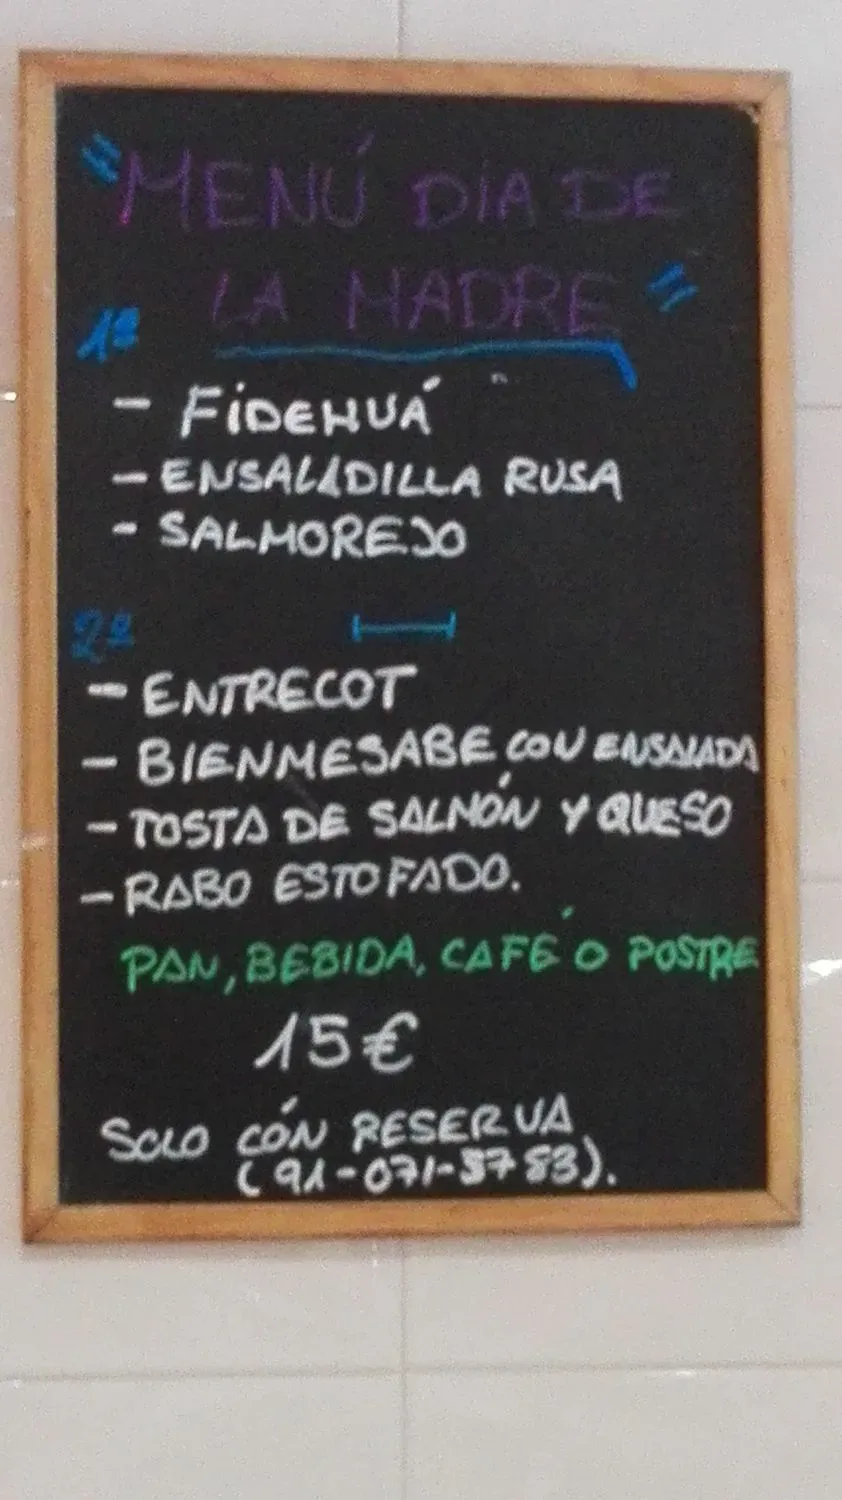 "MENÚ DÍA DE
LA MADRE"
1º
- FIDEHUÁ
- ENSALADILLA RUSA
- SALMOREJO
2º
- ENTRECOT
- BIENMESABE CON ENSALADA
- TOSTA DE SALMÓN Y QUESO
- RABO ESTOFADO.
PAN, BEBIDA, CAFÉ O POSTRE
15€
SOLO CÓN RESERVA
(91-071-3783).